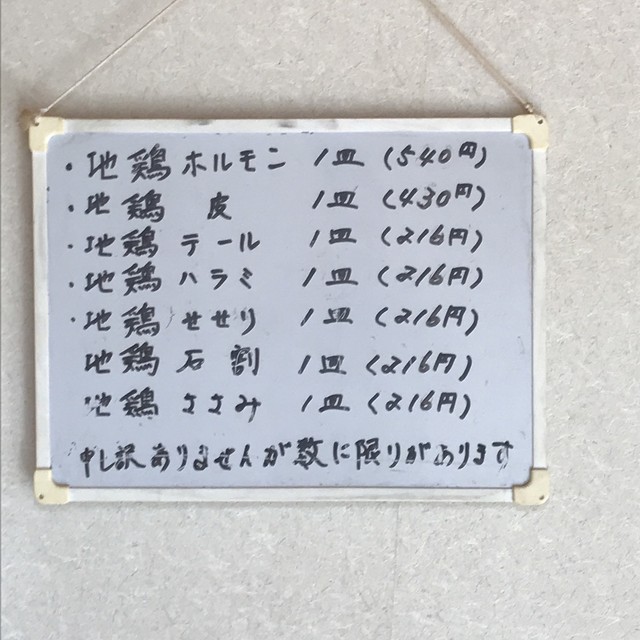 ・地鶏 ホルモン 1皿 (540円)
・地鶏 皮 1皿 (430円)
・地鶏 テール 1皿 (216円)
・地鶏 ハラミ 1皿 (216円)
・地鶏 せせり 1皿 (216円)
地鶏 石割 1皿 (216円)
地鶏 ささみ 1皿 (216円)
申し訳ありませんが数に限りがあります